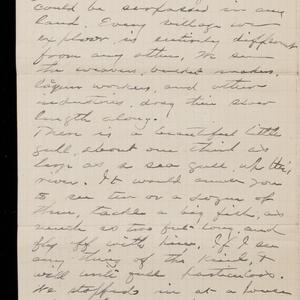 could be surpassed in any
land. Every village we
explore is entirely different
from any other. We see
the weavers, basket makers,
liquor workers, and other
industries, along their river
length along.
There is a beautiful little
gull, about one third as
large as a sea gull, up this
river. It would amuse you
to see two or a dozen of
them, tackle a big fish, as
much as two feet long, and
fly off with him. If I see
any thing of the kind, I
will write full particulars.
We stopped in at a house